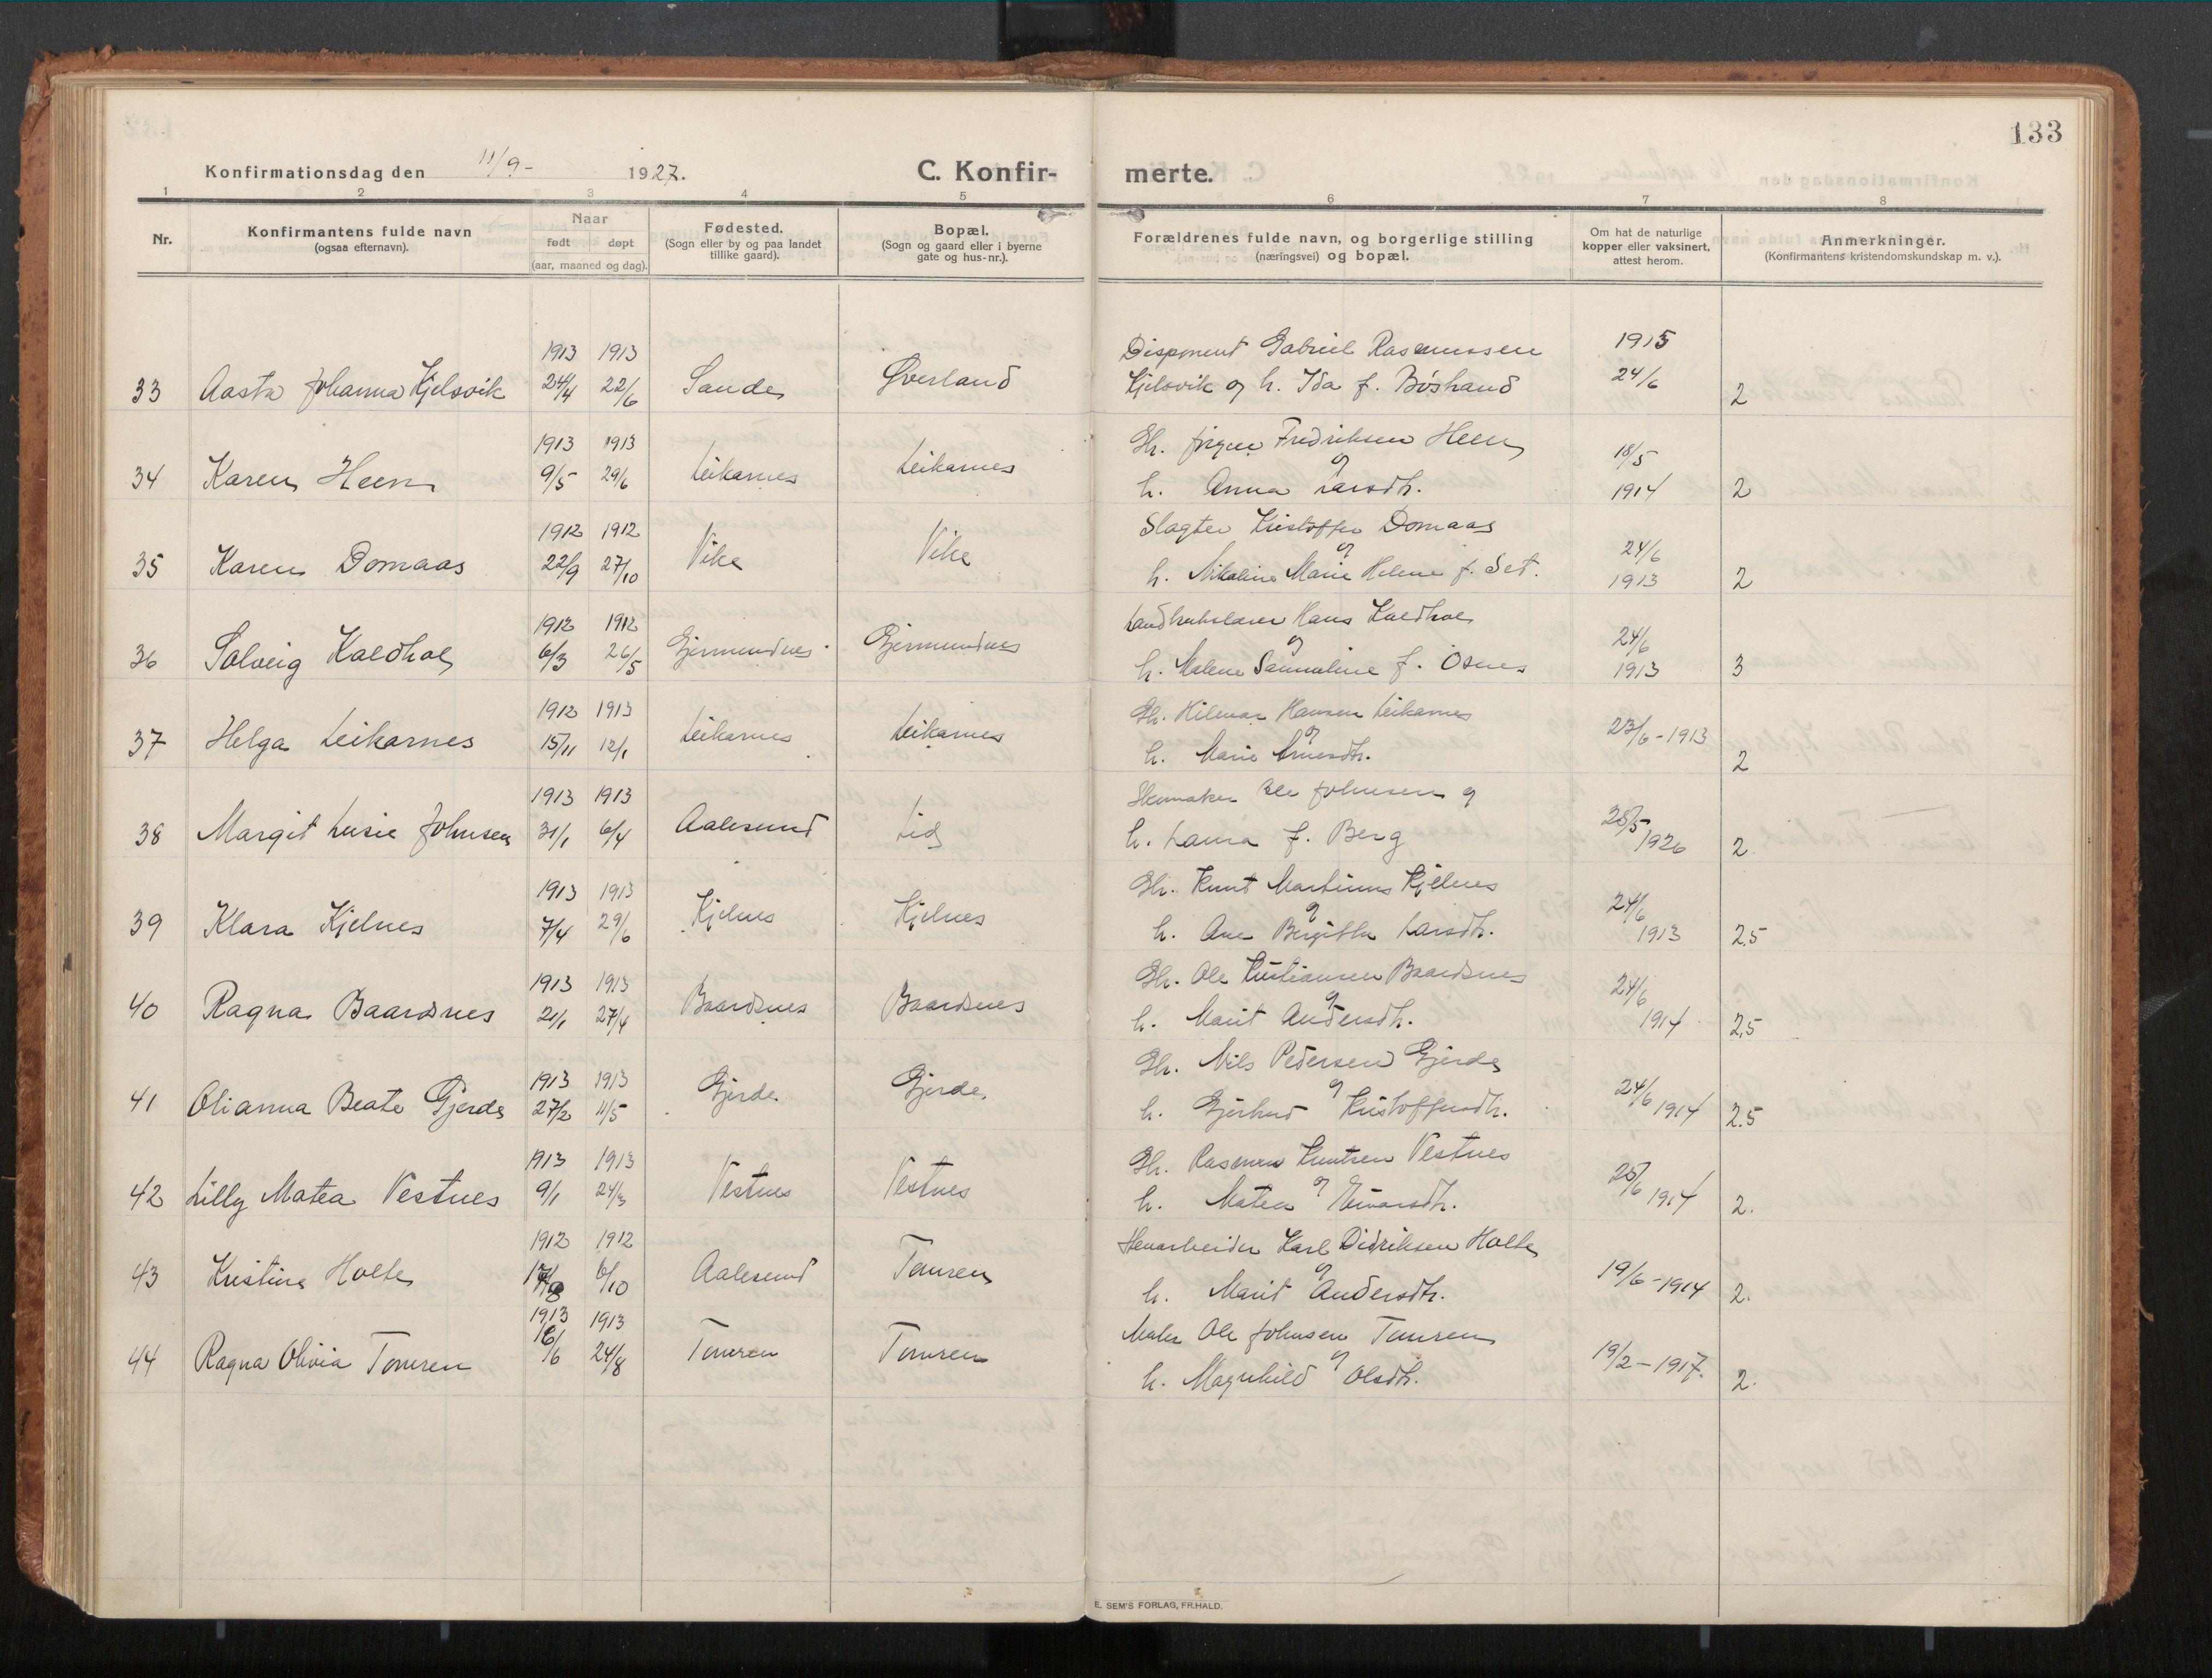 133
Konfirmationsdag den 11/9 - 1927.
C. Konfirmerte.
1 2 3 4 5 6 7 8
Nr.
Konfirmantens fulde navn
(ogsaa efternavn).
Naar
født døpt
(aar, maaned og dag).
Fødested.
(Sogn eller by og paa landet
tillike gaard).
Bopæl.
(Sogn og gaard eller i byerne
gate og hus-nr.).
Forældrenes fulde navn, og borgerlige stilling
(næringsvei) og bopæl.
Om hat de naturlige
kopper eller vaksinert,
attest herom.
Anmerkninger.
(Konfirmantens kristendomskundskap m. v.).
1913 1913 Disponent Gabriel Rasmussen 1915
33 Aasta Johanna Kjelsvik 24/4 22/6 Sande Øverland Kjelsvik og h. Ida f. 24/6 2
1913 1913 Gbr. Jørgen Fredriksen Heen 18/5
34 Karen Heen 9/5 29/6 Leikarnes Leikarnes og h. Anna Larsdtr. 1914 2
1912 1912 Slagter Kristoffer Domaas 24/6
35 Karen Domaas 22/9 27/10 Vike Vike og h. Nikoline Marie Helene f. Set. 1913 2
1912 1912 Landbrukslærer Hans Kaldhol 24/6
36 Solveig Kaldhol 6/3 26/5 Gjermundnes Gjermundnes og h. Malene f. Osnes 1913 3
1912 1913 Gbr. Hilmar Hansen Leikarnes
37 Helga Leikarnes 15/11 12/1 Leikarnes Leikarnes og h. Marie 23/6-1913 2
1913 1913 Skomaker Ole Johnsen og 28/5
38 Margit Lusie Johnsen 31/1 6/4 Aalesund Lid h. Laura f. Berg 1926 2
1913 1913 Gbr. Knut Martinus Kjelnes 24/6
39 Klara Kjelnes 7/4 29/6 Kjelnes Kjelnes og h. Ane Bergitte Larsdtr. 1913 2.5
1913 1913 Gbr. Ole Kristiansen Baardsnes 24/6
40 Ragna Baardsnes 21/1 27/4 Baardsnes Baardsnes og h. Marit Andersdtr. 1914 2,5
1913 1913 Gbr. Nils Pedersen Gjerde 24/6
41 Olianna Beate Gjerde 27/2 11/5 Gjerde Gjerde og h. Gjertrud Kristoffersdtr. 1914 2.5
1913 1913 Gbr. Rasmus Knutsen Vestnes 25/6
42 Lilly Matea Vestnes 9/1 24/3 Vestnes Vestnes og h. Matea 1914 2.
1912 1912 Karl Didriksen Holte
43 Kristine Holte 6/10 Aalesund Tomren og h. Marit Andersdtr. 19/6-1914 2.
1913 1913 Maler Ole Johnsen Tomren
44 Ragna Olivia Tomren 24/8 Tomren Tomren og h. Magnhild Olsdtr. 19/2-1917. 2.
E. SEM'S FORLAG, FR.HALD.